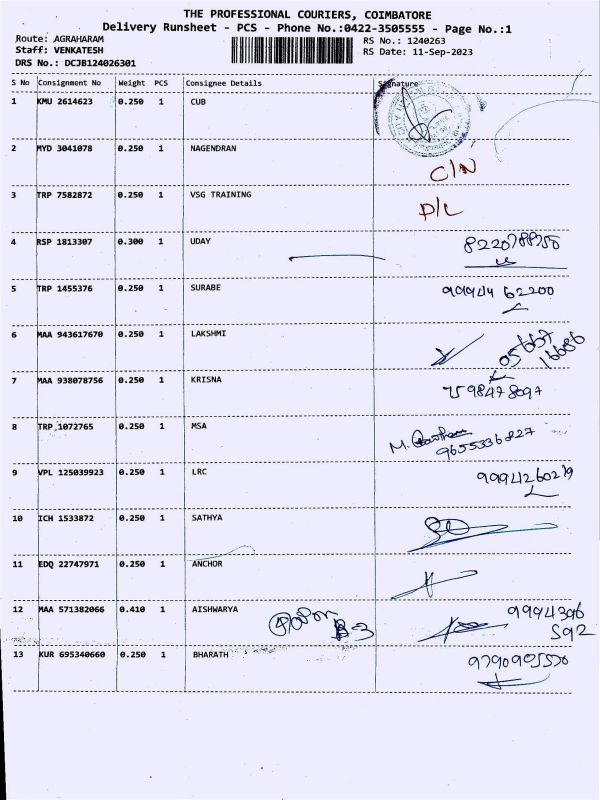 THE PROFESSIONAL COURIERS, COIMBATORE
Delivery Runsheet - PCS - Phone No.:0422-3505555 - Page No.:1
Route: AGRAHARAM RS No.: 1240263
Staff: VENKATESH RS Date: 11-Sep-2023
DRS No.: DCJB124026301
S No Consignment No Weight PCS Consignee Details Signature
1 KMU 2614623 0.250 1 CUB
2 MYD 3041078 0.250 1 NAGENDRAN C/N
3 TRP 7582872 0.250 1 VSG TRAINING D/L
4 RSP 1813307 0.300 1 UDAY
5 TRP 1455376 0.250 1 SURABE 99944 62200
6 MAA 943617670 0.250 1 LAKSHMI
7 MAA 938078756 0.250 1 KRISNA 7598478097
8 TRP 1072765 0.250 1 MSA M.
9655336827
9 VPL 125039923 0.250 1 LRC 9994260219
10 ICH 1533872 0.250 1 SATHYA
11 EDQ 22747971 0.250 1 ANCHOR
12 MAA 571382066 0.410 1 AISHWARYA 9994396
B-3 592
13 KUR 695340660 0.250 1 BHARATH